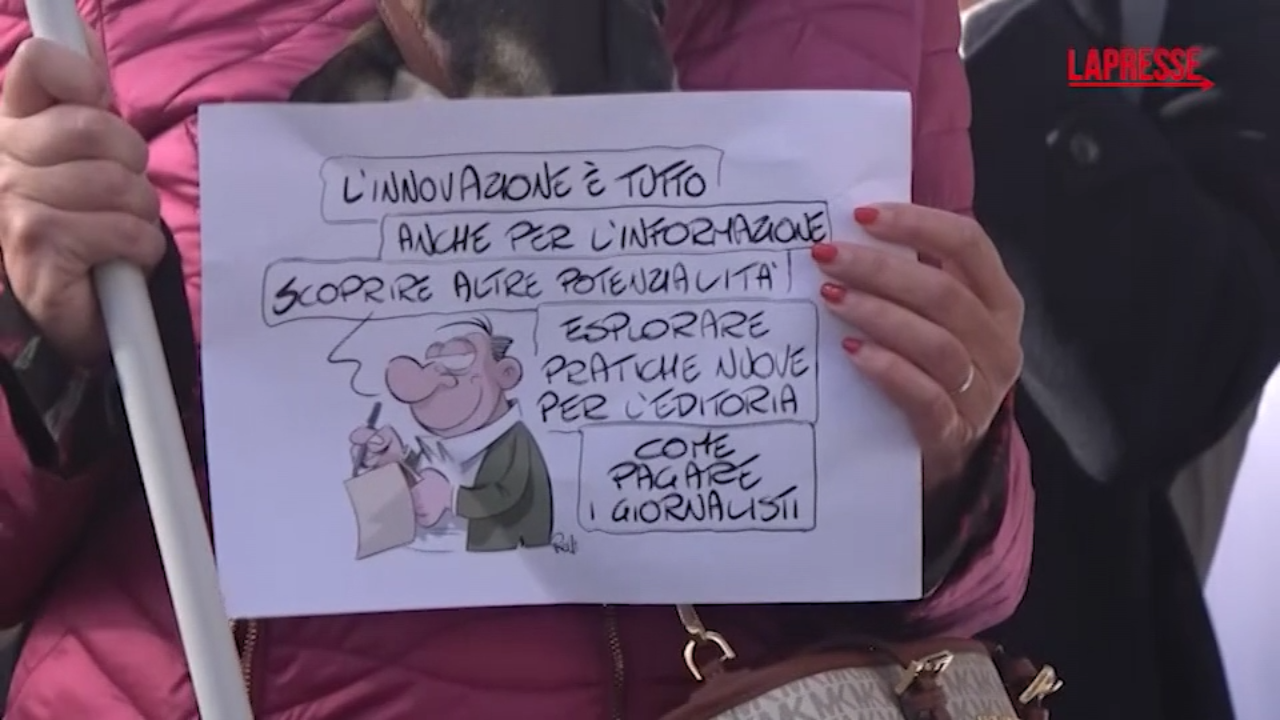 LAPRESSE
L'INNOVAZIONE È TUTTO
ANCHE PER L'INFORMAZIONE
SCOPRIRE ALTRE POTENZIALITA'
ESPLORARE
PRATICHE NUOVE
PER L'EDITORIA
COME
PAGARE
I GIORNALISTI